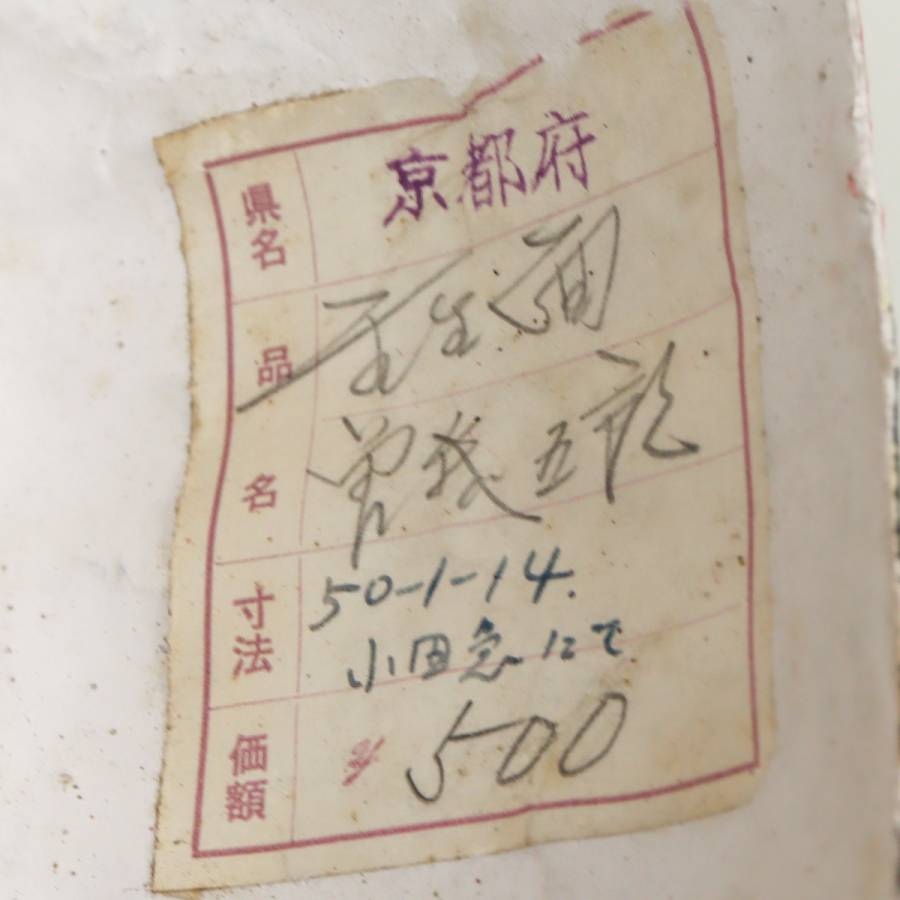 県名 京都府
品名 壬生面
曽我五郎
寸法 50-1-14.
小田急にて
価額 ¥ 500